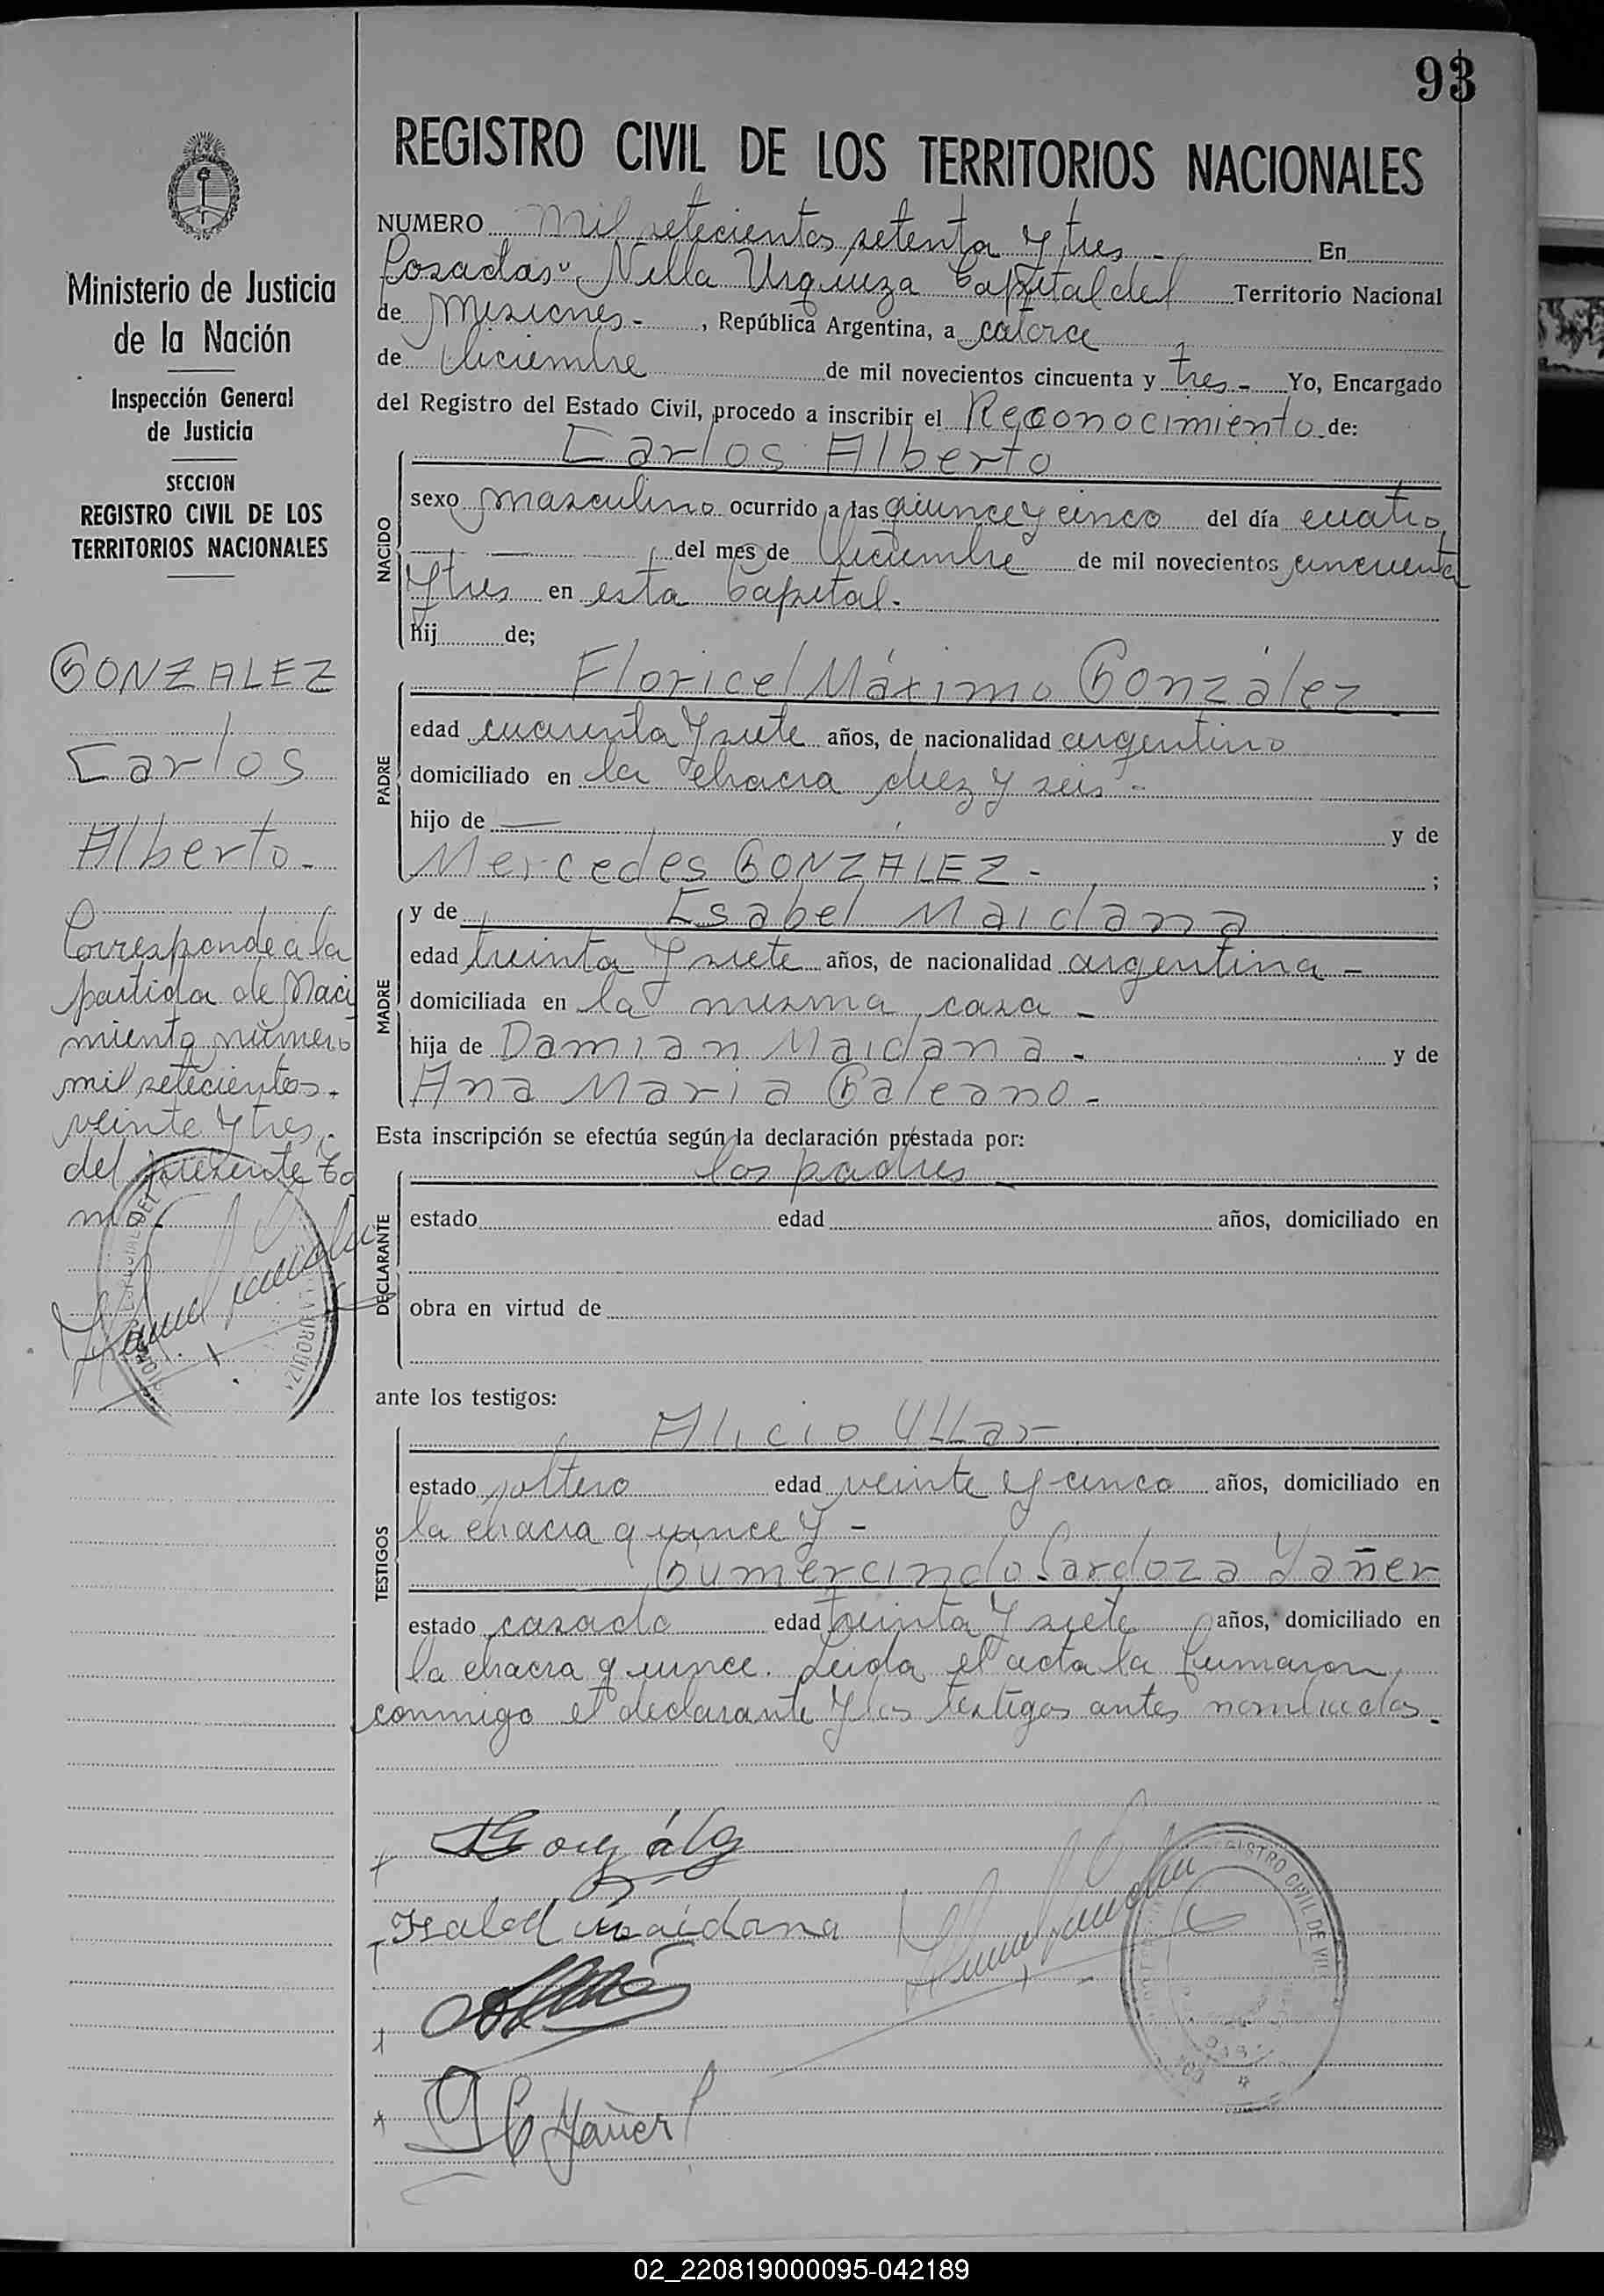 93
REGISTRO CIVIL DE LOS TERRITORIOS NACIONALES
NUMERO mil setecientos setenta y tres - En
Posadas" Villa Urquiza Capital del Territorio Nacional
de Misiones - , República Argentina, a catorce
de diciembre de mil novecientos cincuenta y tres - Yo, Encargado
del Registro del Estado Civil, procedo a inscribir el Reconocimiento de:
Carlos Alberto
NACIDO
sexo masculino ocurrido a las quince y cinco del día cuatro
del mes de diciembre de mil novecientos cincuenta
y tres en esta Capital.
hij de;
PADRE
Floricel Máximo González
edad cuarenta y siete años, de nacionalidad argentino
domiciliado en la chacra diez y seis -
hijo de — y de
Mercedes GONZALEZ - ;
MADRE
y de Isabel Maidana
edad treinta y siete años, de nacionalidad argentina -
domiciliada en la misma casa -
hija de Damian Maidana - y de
Ana Maria Galeano -
Esta inscripción se efectúa según la declaración prestada por:
DECLARANTE
los padres
estado edad años, domiciliado en
obra en virtud de
ante los testigos:
TESTIGOS
Alicio Ullar
estado soltero edad veinte y cinco años, domiciliado en
la chacra quince y -
Gumercindo Cardoza Yañer
estado casado edad treinta y siete años, domiciliado en
la chacra quince. Leida el acta la firmaron
conmigo el declarante y los testigos antes nombrados.
González
Isabel Maidana
G C Yañer
REGISTRO CIVIL DE
Ministerio de Justicia
de la Nación
Inspección General
de Justicia
SECCION
REGISTRO CIVIL DE LOS
TERRITORIOS NACIONALES
GONZALEZ
Carlos
Alberto -
Corresponde a la
partida de Naci
miento número
mil setecientos
veinte y tres,
del presente To
mo.
URQUIZA
02_220819000095-042189